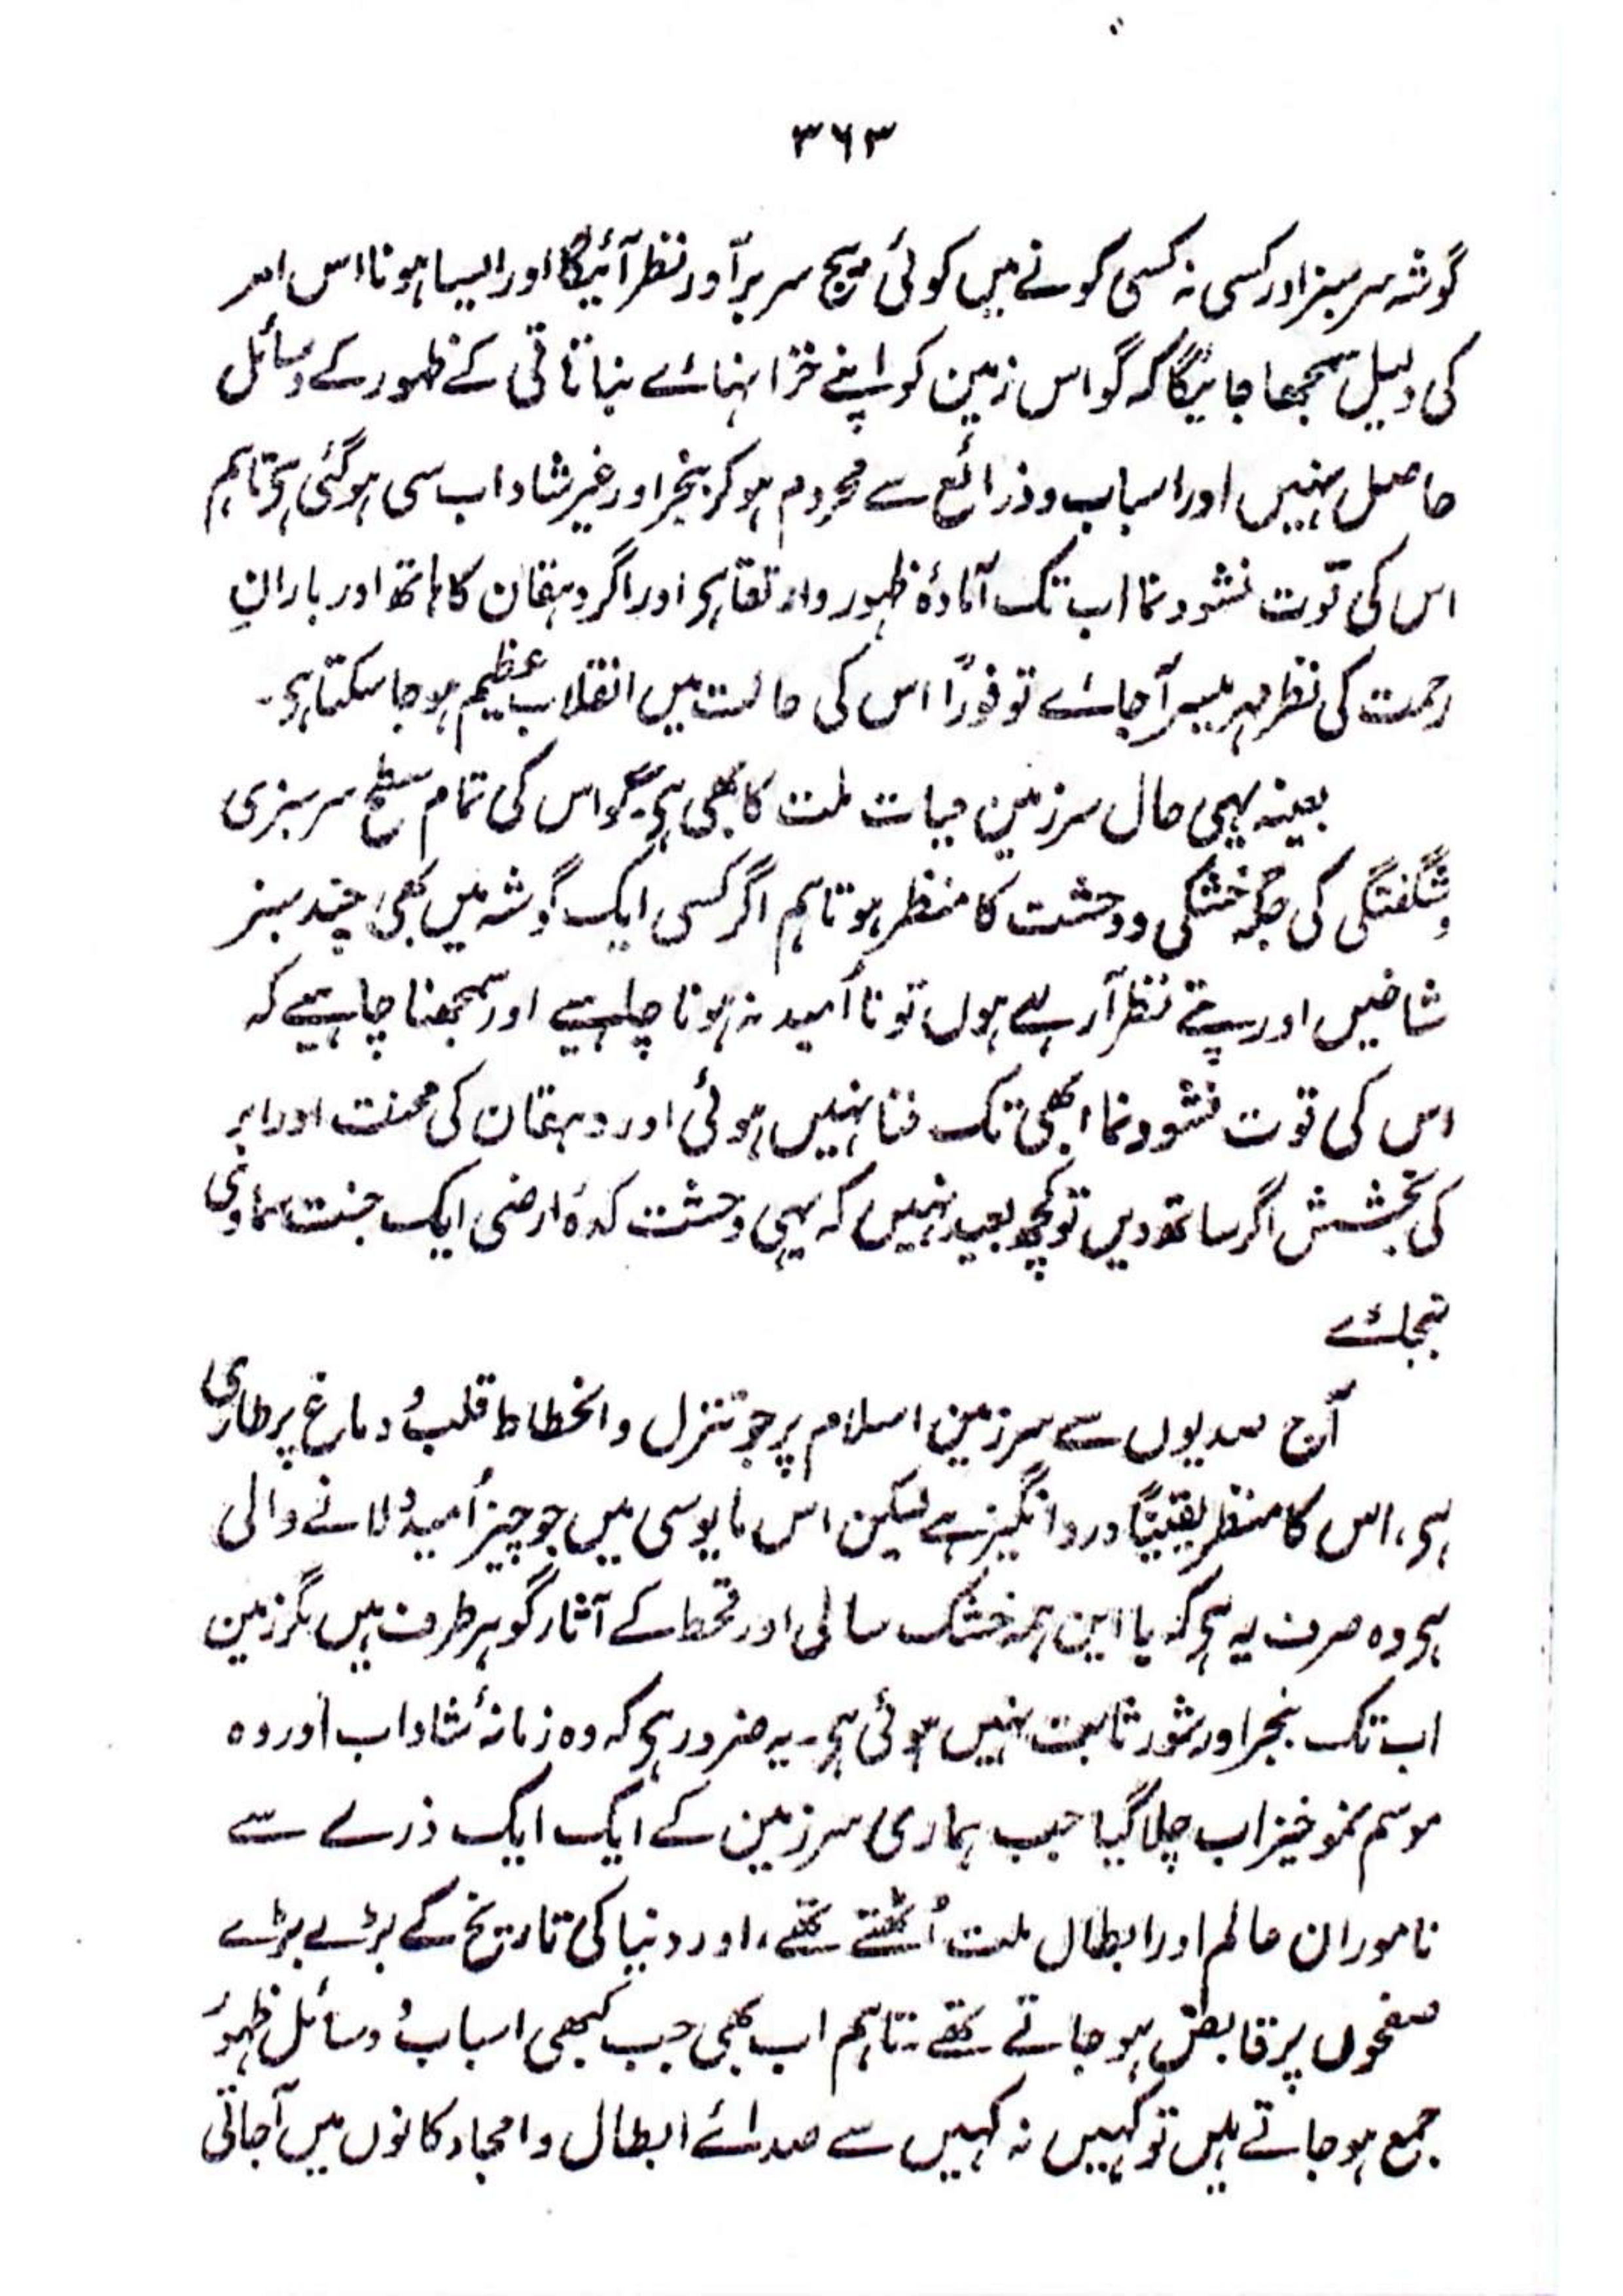 ۳۶۳
گوشہ سرسبز اور کسی نہ کسی کونے میں کوئی بیج سر برآور نظر آئیگا اور ایسا ہونا اس امر
کی دلیل سمجھا جائیگا کہ گو اس زمین کو اپنے خزانہائے نباتاتی کے ظہور کے وسائل
حاصل نہیں اور اسباب و ذرائع سے محروم ہو کر بنجر اور غیر شاداب سی ہو گئی ہو تاہم
اس کی قوّت نشو و نما اب تک آمادۂ ظہور و ارتقا ہو اور اگر دہقان کا ہاتھ اور بارانِ
رحمت کی نظر مہر میسر آجائے تو فوراً اس کی حالت میں انقلاب عظیم ہو جا سکتا ہو۔
بعینہ یہی حال سرزمین حیات ملت کا بھی ہو گو اس کی تمام سطح سرسبزی
و شگفتگی کی جگہ خشکی و وحشت کا منظر ہو تاہم اگر کسی ایک گوشہ میں بھی چند سبز
شاخیں اور پتے نظر آ رہے ہوں تو نا اُمید نہ ہونا چاہیے اور سمجھنا چاہیے کہ
اس کی قوت نشو و نما ابھی تک فنا نہیں ہوئی اور دہقان کی محنت اور ابر
کی بخشش اگر ساتھ دیں تو کچھ بعید نہیں کہ یہی وحشت کدۂ ارضی ایک جنت سماوی
بنجائے
آج صدیوں سے سرزمین اسلام پر جو تنزل و انحطاط قلب و دماغ پر طاری
ہو، اس کا منظر یقیناً درد انگیز ہے لیکن اس مایوسی میں جو چیز اُمید دلانے والی
ہو وہ صرف یہ ہو کہ با این ہمہ خشک سالی اور قحط کے آثار گو ہر طرف ہیں مگر زمین
اب تک بنجر اور شور ثابت نہیں ہوئی ہو۔ یہ ضرور ہو کہ وہ زمانۂ شاداب اور وہ
موسم نمو خیز اب چلا گیا جب ہماری سرزمین کے ایک ایک ذرے سے
ناموران عالم اور ابطال ملت اُٹھتے تھے، اور دنیا کی تاریخ کے بڑے بڑے
صفحوں پر قابض ہو جاتے تھے۔ تاہم اب بھی جب کبھی اسباب و وسائل ظہور
جمع ہو جاتے ہیں تو کہیں نہ کہیں سے صدائے ابطال و امجاد کانوں میں آجاتی